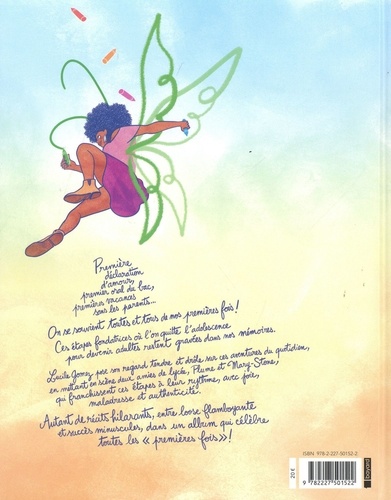 Première
déclaration
d'amour,
premier oral du bac,
premières vacances
sans les parents...
On se souvient toutes et tous de nos premières fois !
Ces étapes fondatrices où l'on quitte l'adolescence
pour devenir adultes restent gravées dans nos mémoires.
Lucile Gomez pose son regard tendre et drôle sur ces aventures du quotidien,
en mettant en scène deux amies de lycée, Plume et Mary-Stone,
qui franchissent ces étapes à leur rythme, avec joie,
maladresse et authenticité.
Autant de récits hilarants, entre loose flamboyante
et succès minuscules, dans un album qui célèbre
toutes les « premières fois » !
20 €
ISBN 978-2-227-50152-2
9 782227 501522
bayard